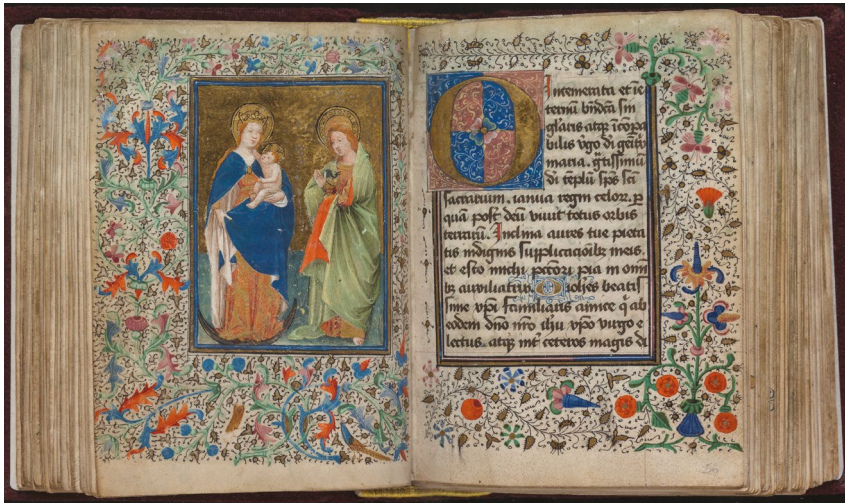 O Intemerata et in e
ternū bn̄dcā sin
glaris atqꝫ īcōpa
bilis v̾go di geīto
maria. gtissimū
di tēplū sp̄s sc̄i
sacrarium. ianua regni celoꝝ. ꝑ
quā post deū viuit totus orbis
terrarū. Inclina aures tue pieta
tis indignis supplicacioībꝫ meis.
et esto michi pctori pia in omī
bꝫ auxiliatrix. O ioh̄es beatis
sime xp̄i familiaris amice qͥ ab
eodem dn̄o nr̄o ih̄u xp̄o virgo e
lectus. atqꝫ int̾ ceteros magis di